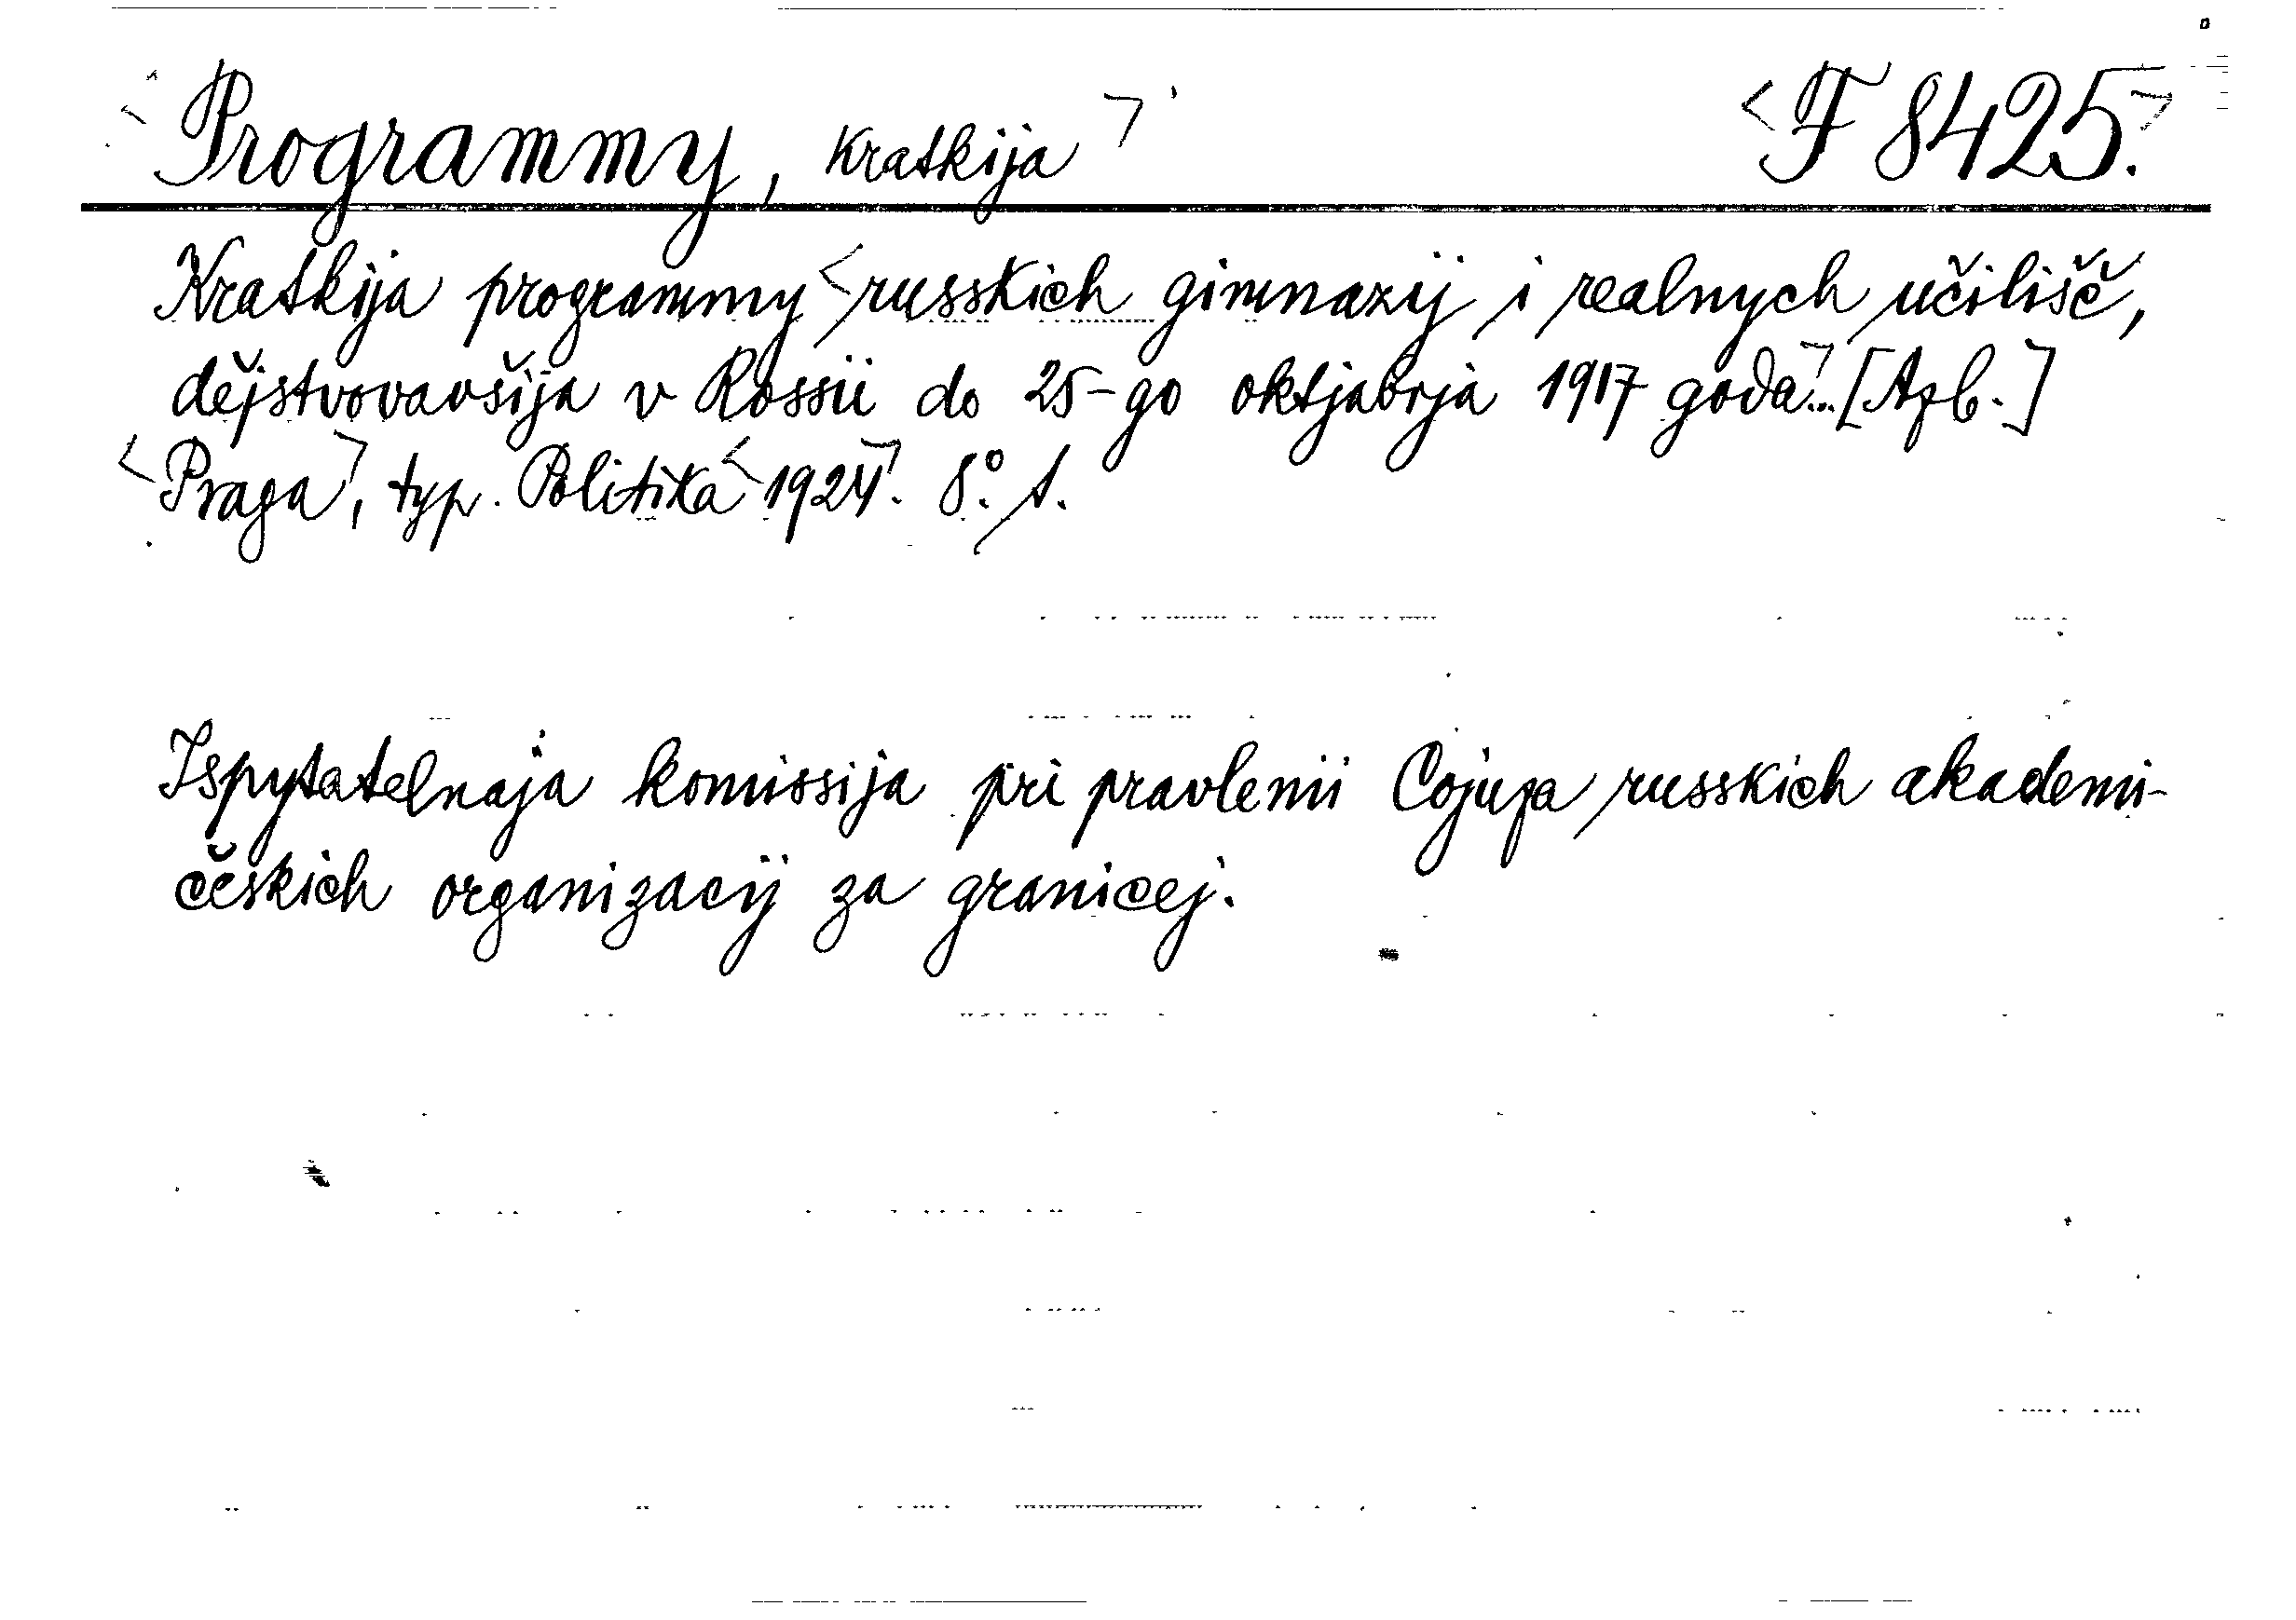 <Programmy, Kratkija> <F 8425.>
Kratkija programmy <russkich gimnazij i realnych učilišč,
dějstvovavšija v Rossii do 25-go oktjabrja 1917 goda>... [Azb.]
<Praga>, typ. Politika <1924>. 8°. s.
Ispytatelnaja komissija pri pravlenii Cojuza russkich akademi-
českich organizacij za granicej.